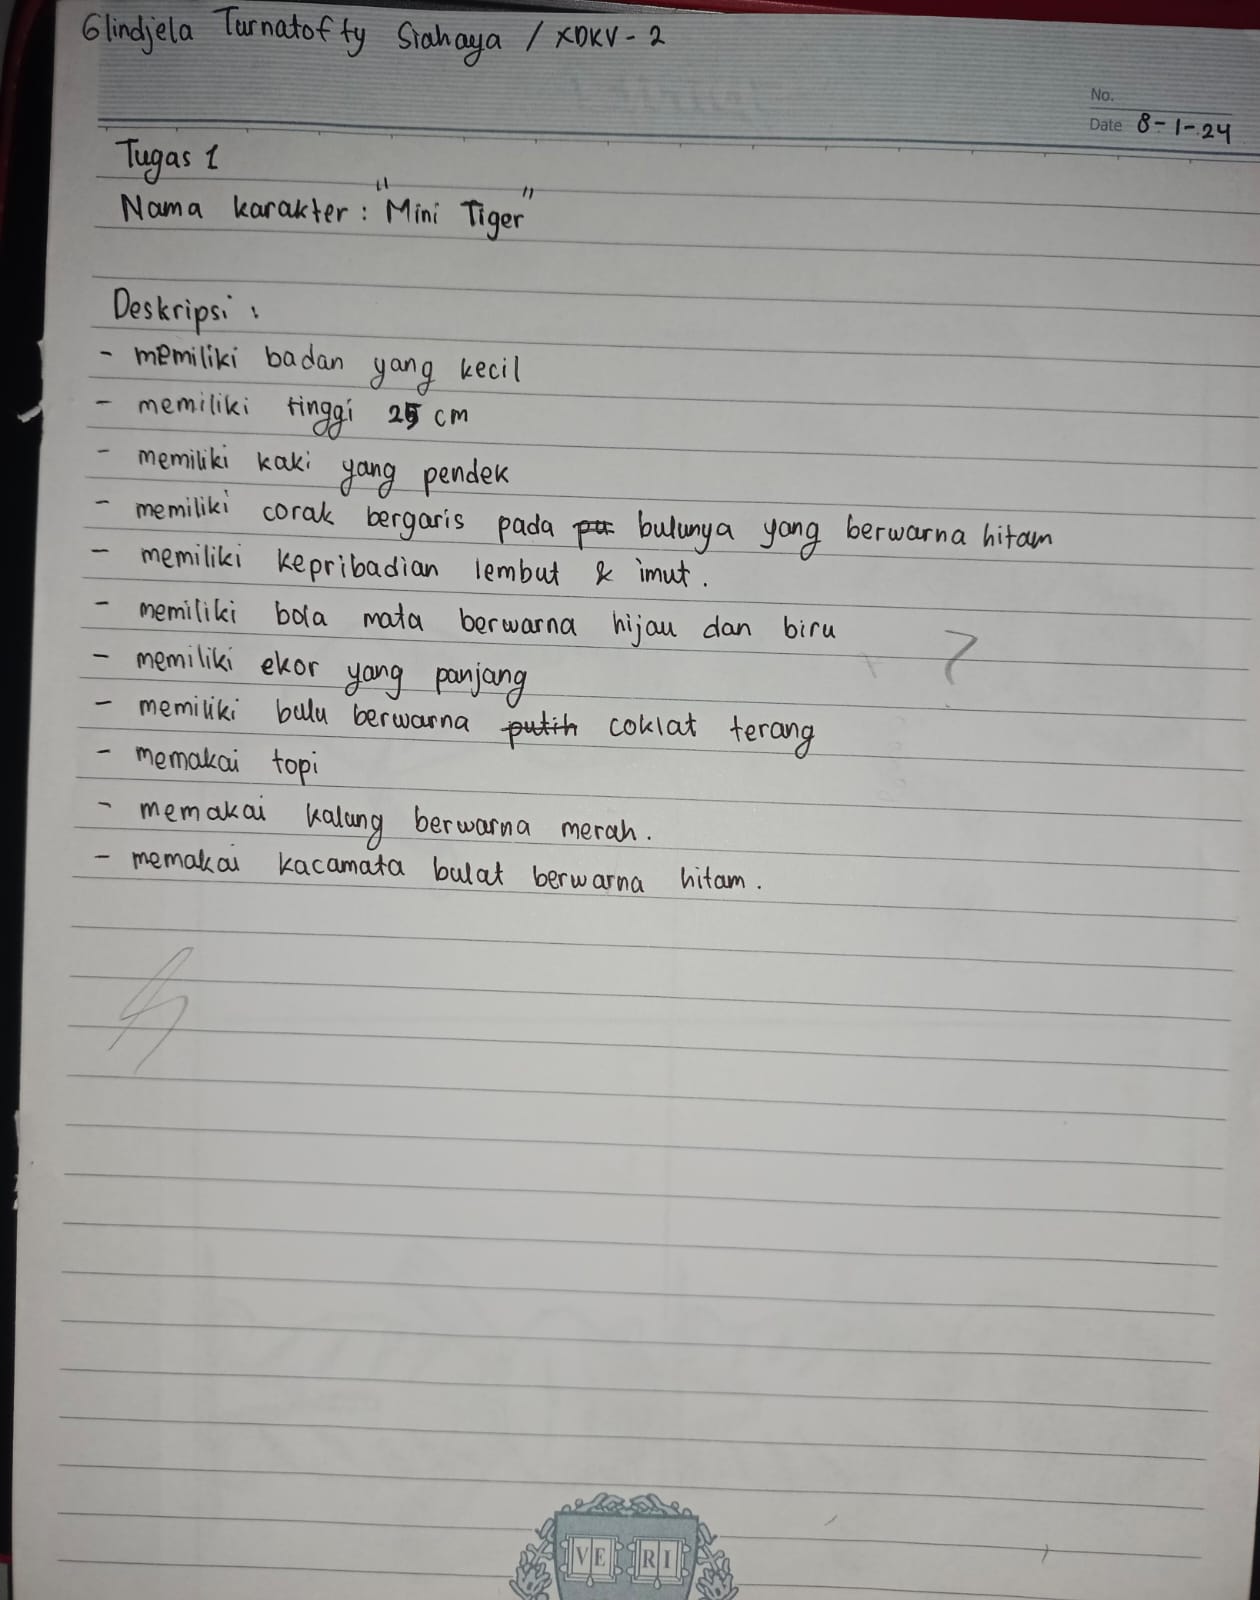 Glindjela Turnatofty Siahaya / XDKV - 2
No.
Date 8-1-24
Tugas 1
Nama karakter : "Mini Tiger"
Deskripsi :
- memiliki badan yang kecil
- memiliki tinggi 25 cm
- memiliki kaki yang pendek
- memiliki corak bergaris pada pu bulunya yang berwarna hitam
- memiliki kepribadian lembut & imut.
- memiliki bola mata berwarna hijau dan biru
- memiliki ekor yang panjang
- memiliki bulu berwarna putih coklat terang
- memakai topi
- memakai kalung berwarna merah.
- memakai kacamata bulat berwarna hitam.
7
VE RI